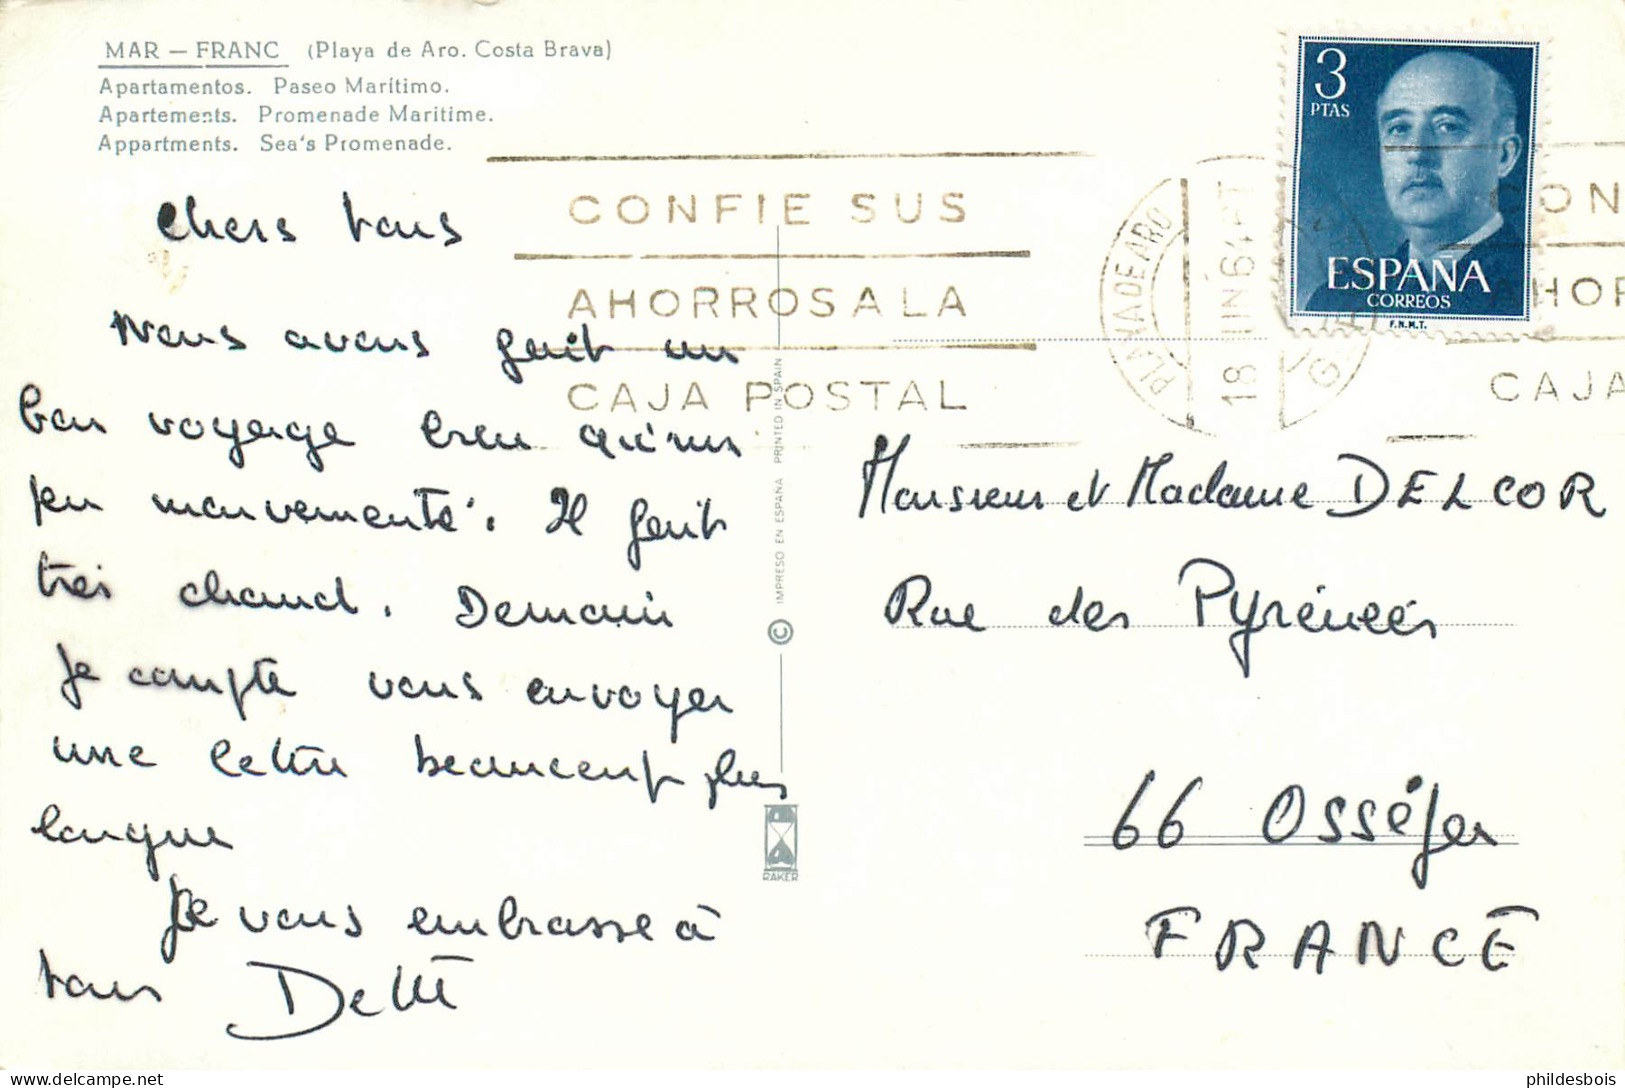 MAR – FRANC (Playa de Aro. Costa Brava)
Apartamentos. Paseo Marítimo.
Apartements. Promenade Maritime.
Appartments. Sea's Promenade.
Chers tous
Nous avons fait un
bon voyage bien qu'un
peu mouvementé. Il fait
très chaud. Demain
Je compte vous envoyer
une lettre beaucoup plus
longue
Je vous embrasse à
tous Dette
CONFIE SUS
AHORROS A LA
CAJA POSTAL
PLAYA DE ARO
18 JUN 64
G
3
PTAS
ESPAÑA
CORREOS
F.N.M.T.
CON
AHOR
CAJA
IMPRESO EN ESPAÑA PRINTED IN SPAIN
©
RAKER
Monsieur et Madame DELCOR
Rue des Pyrénées
66 Osséja
FRANCE
phildesbois